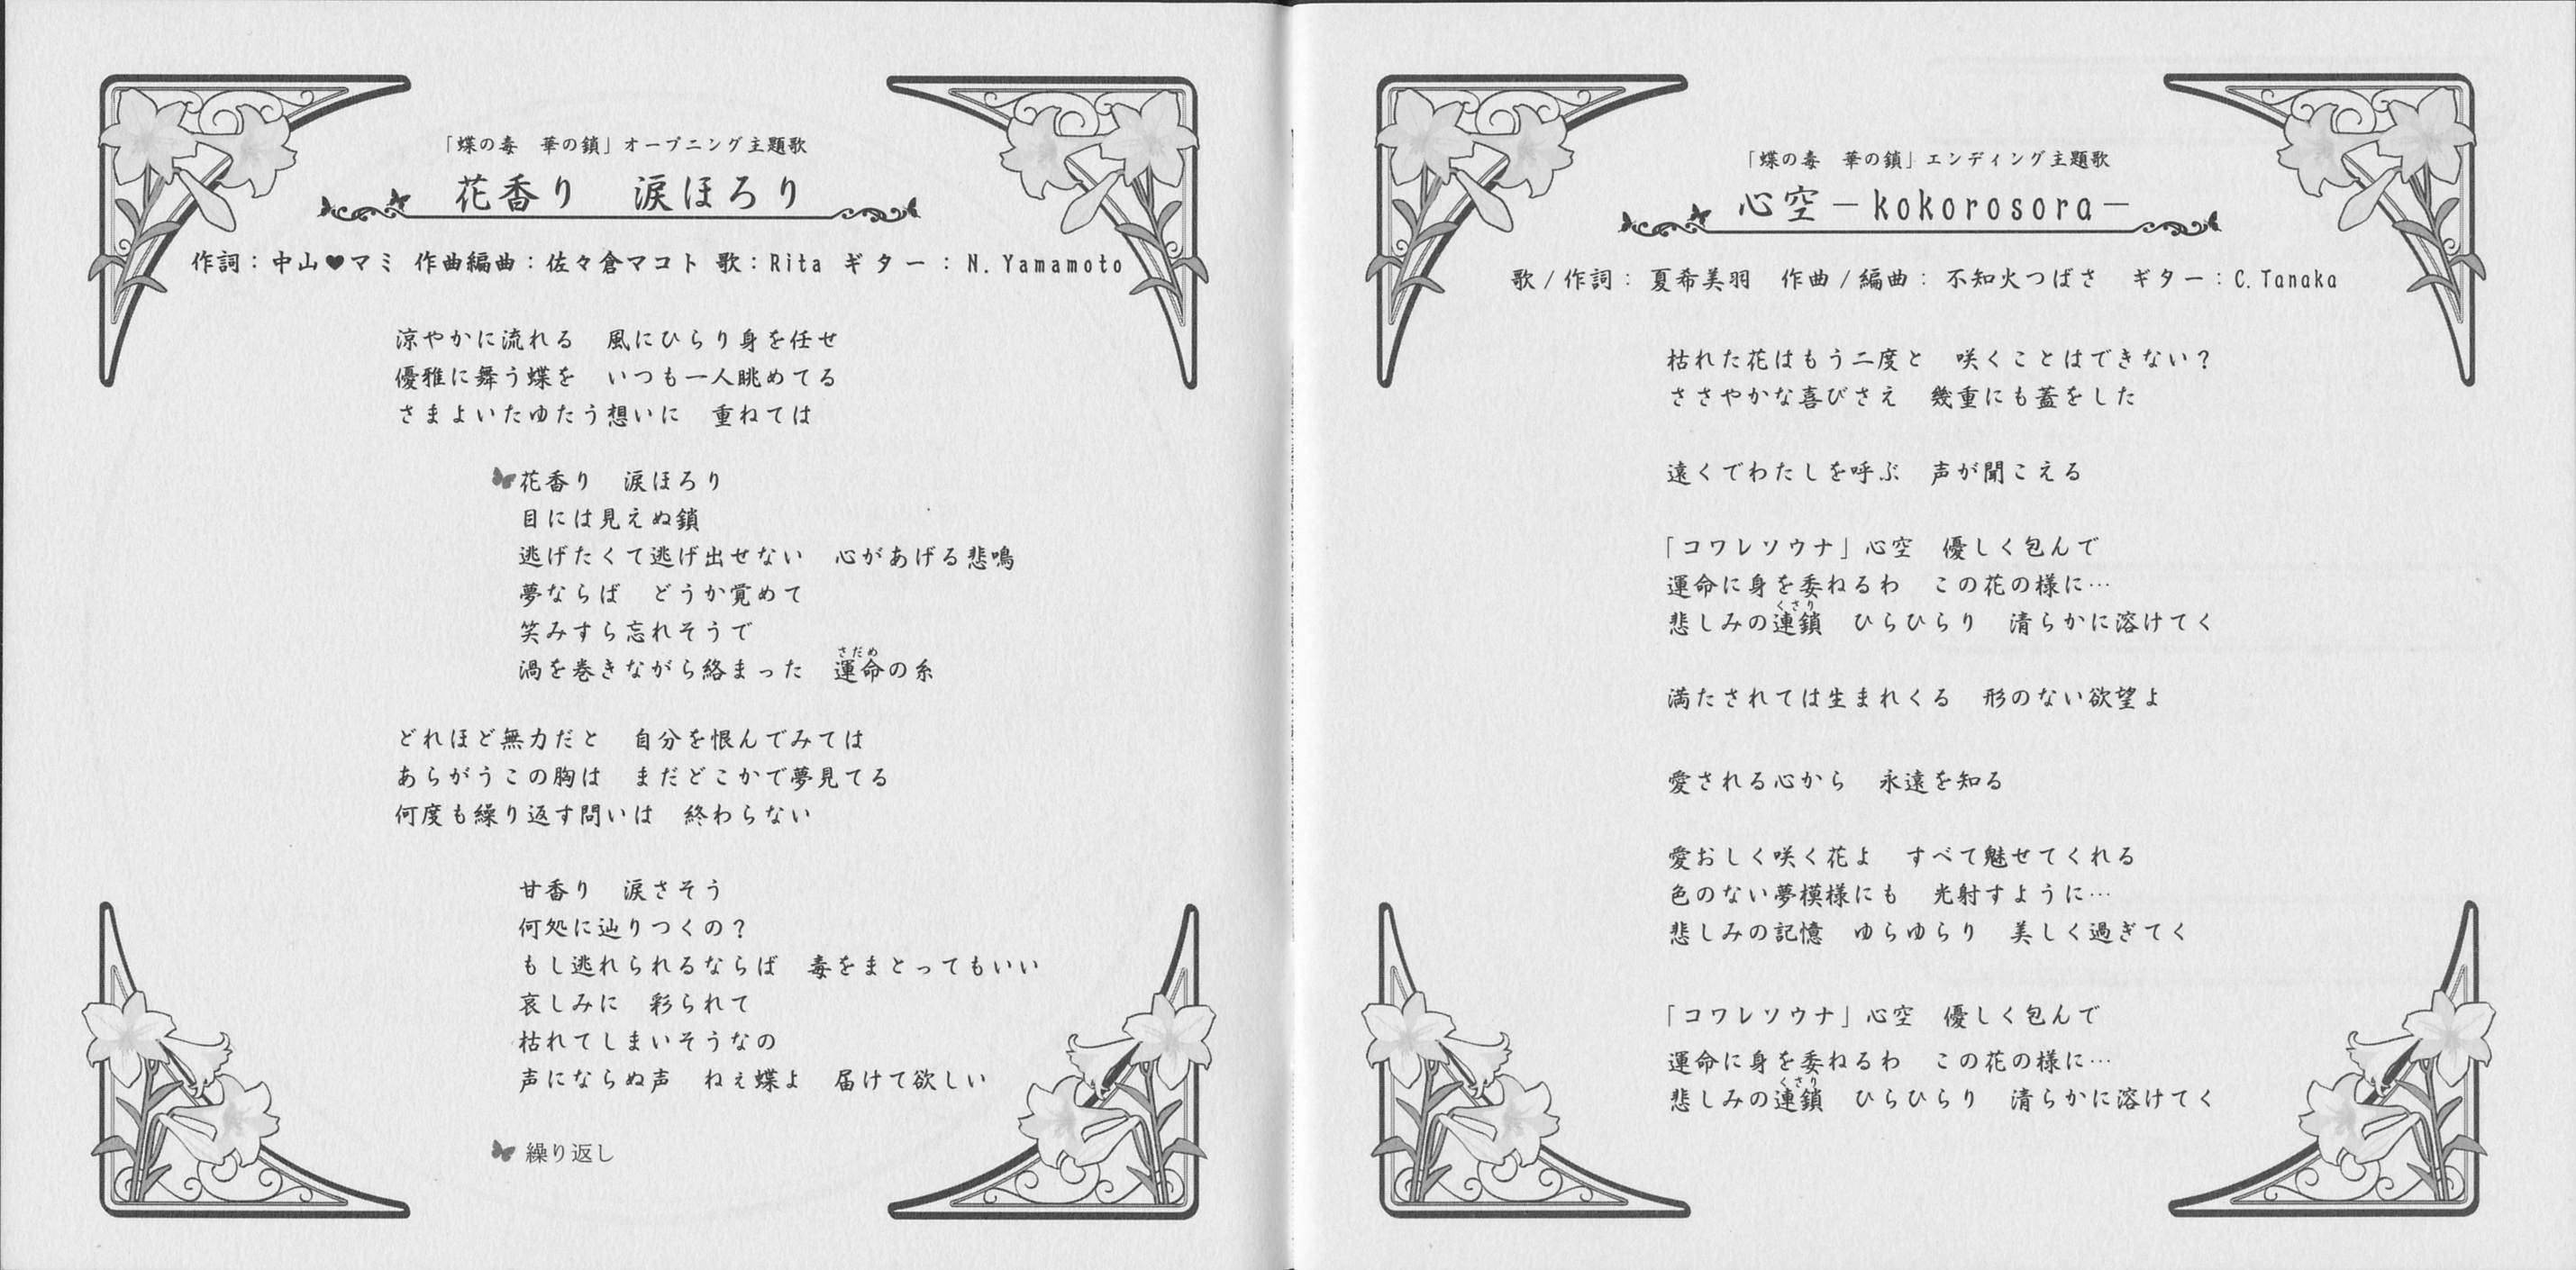 「蝶の毒　華の鎖」オープニング主題歌
花香り　涙ほろり
作詞：中山♥マミ 作曲編曲：佐々倉マコト 歌：Rita ギター：N.Yamamoto
涼やかに流れる　風にひらり身を任せ
優雅に舞う蝶を　いつも一人眺めてる
さまよいたゆたう想いに　重ねては
花香り　涙ほろり
目には見えぬ鎖
逃げたくて逃げ出せない　心があげる悲鳴
夢ならば　どうか覚めて
笑みすら忘れそうで
さだめ
渦を巻きながら絡まった　運命の糸
どれほど無力だと　自分を恨んでみては
あらがうこの胸は　まだどこかで夢見てる
何度も繰り返す問いは　終わらない
甘香り　涙さそう
何処に辿りつくの？
もし逃れられるならば　毒をまとってもいい
哀しみに　彩られて
枯れてしまいそうなの
声にならぬ声　ねぇ蝶よ　届けて欲しい
繰り返し
「蝶の毒　華の鎖」エンディング主題歌
心空－kokorosora－
歌/作詞：夏希美羽　作曲/編曲：不知火つばさ　ギター：C.Tanaka
枯れた花はもう二度と　咲くことはできない？
ささやかな喜びさえ　幾重にも蓋をした
遠くでわたしを呼ぶ　声が聞こえる
「コワレソウナ」心空　優しく包んで
運命に身を委ねるわ　この花の様に…
くさり
悲しみの連鎖　ひらひらり　清らかに溶けてく
満たされては生まれくる　形のない欲望よ
愛される心から　永遠を知る
愛おしく咲く花よ　すべて魅せてくれる
色のない夢模様にも　光射すように…
悲しみの記憶　ゆらゆらり　美しく過ぎてく
「コワレソウナ」心空　優しく包んで
運命に身を委ねるわ　この花の様に…
くさり
悲しみの連鎖　ひらひらり　清らかに溶けてく